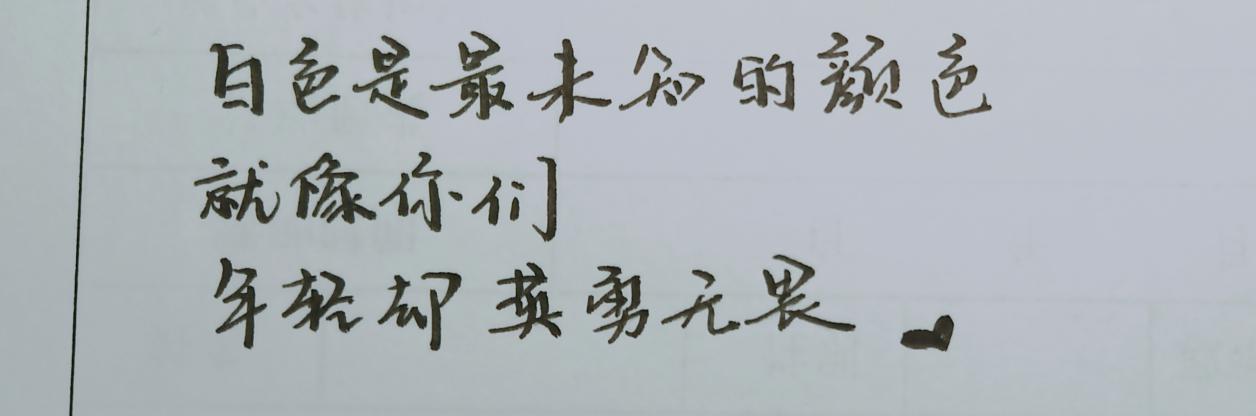 白色是最未知的颜色
就像你们
年轻却英勇无畏